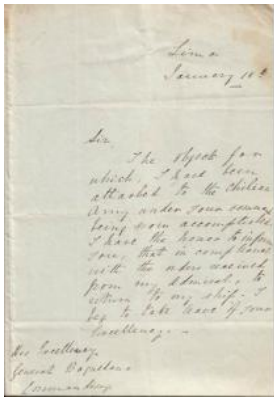 Lima
January 18th
Sir
The object for
which, I have been
attached to the Chilian
Army under your command
being now accomplished
I have the honor to inform
you, that in compliance
with the orders received
from my Admiral, to
return to my ship. I
beg to take leave of your
Excellency.
His Excellency
General Baquedano
Commanding